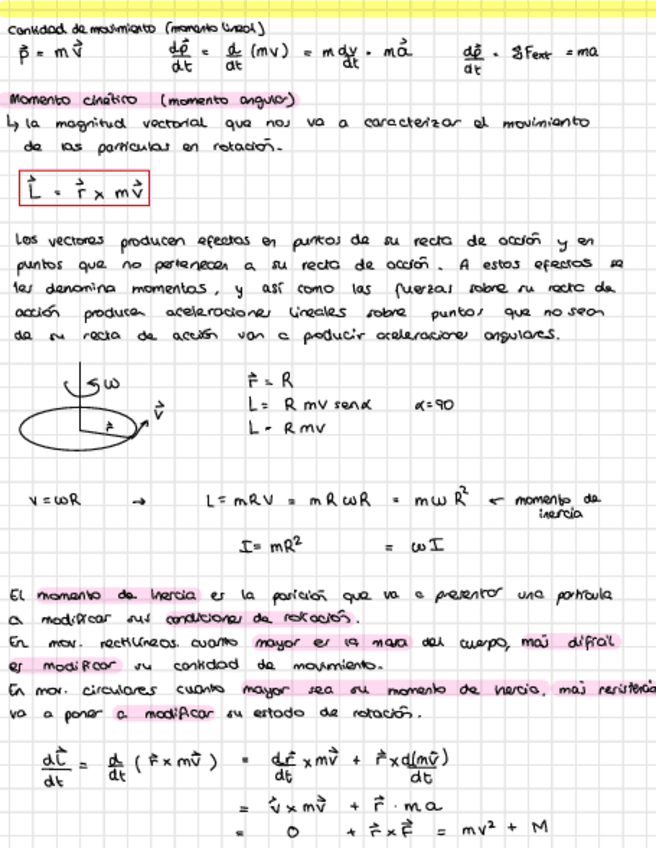 Cantidad de movimiento (momento lineal)
p⃗ = m v⃗   dp⃗/dt = d/dt (mv) = m dv/dt = m a⃗   dp⃗/dt = ΣFext = ma
Momento cinético (momento angular)
↳ la magnitud vectorial que nos va a caracterizar el movimiento
de las partículas en rotación.
L⃗ = r⃗ x m v⃗
Los vectores producen efectos en puntos de su recta de acción y en
puntos que no pertenecen a su recta de acción. A estos efectos se
les denomina momentos, y así como las fuerzas sobre su recta de
acción producen aceleraciones lineales sobre puntos que no sean
de su recta de acción van a producir aceleraciones angulares.
ω
v⃗
r⃗
r⃗ = R
L = R mv senα   α=90
L = R mv
v = ωR → L = mRV = mRωR = mωR² ← momento de
inercia
I = mR²   = ωI
El momento de inercia es la posición que va a presentar una partícula
a modificar sus condiciones de rotación.
En mov. rectilíneos. cuanto mayor es la masa del cuerpo, más difícil
es modificar su cantidad de movimiento.
En mov. circulares cuanto mayor sea su momento de inercia, más resistencia
va a poner a modificar su estado de rotación.
dL⃗/dt = d/dt (r⃗ x m v⃗) = dr⃗/dt x m v⃗ + r⃗ x d(m v⃗)/dt
= v⃗ x m v⃗ + r⃗ · ma
= 0 + r⃗ x F⃗ = mv² + M